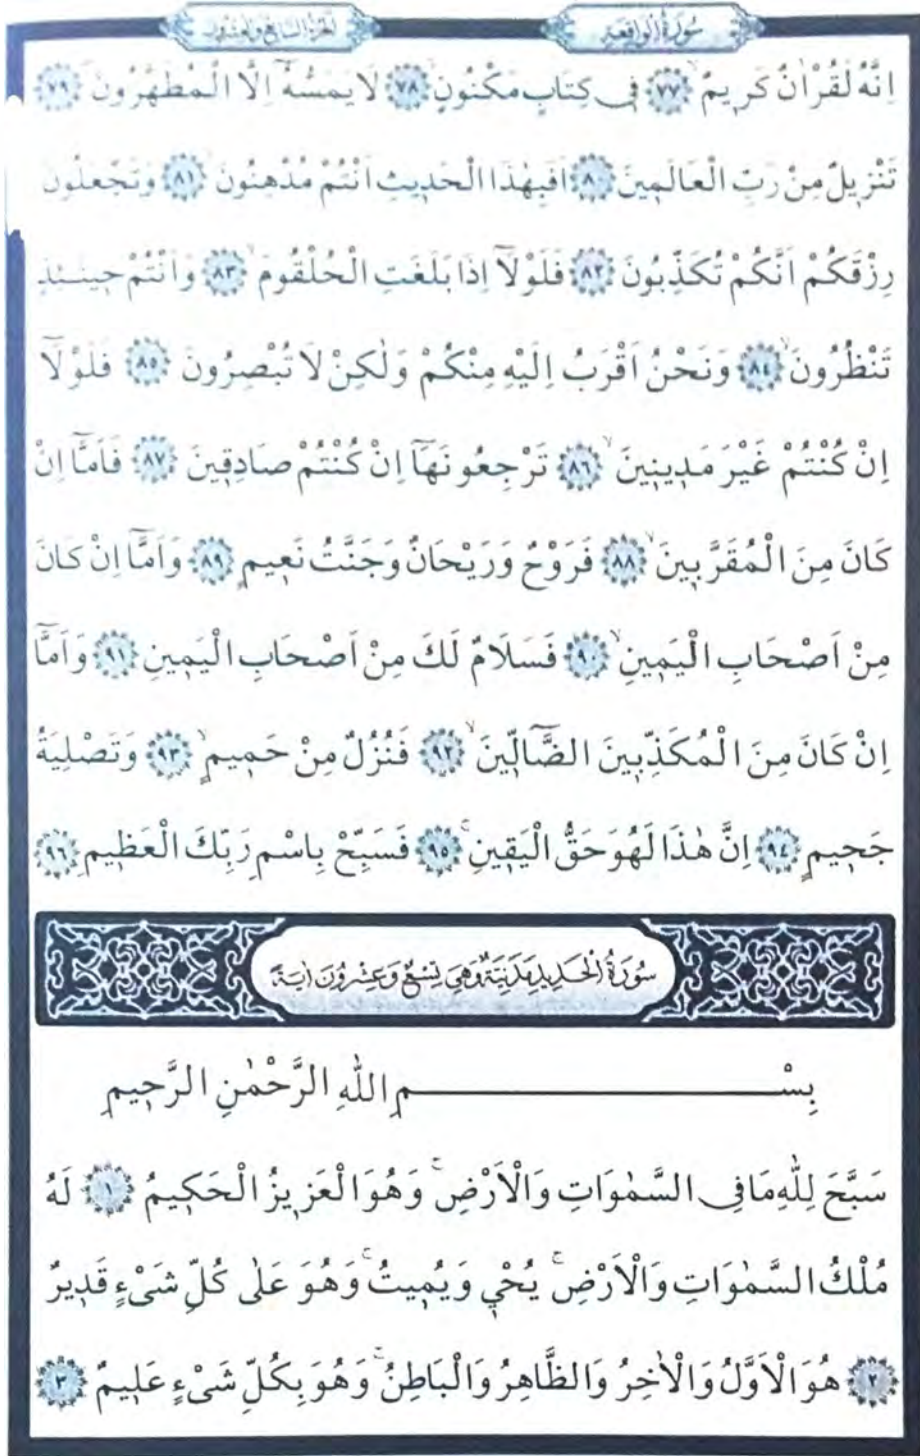 سُورَةُ الْوَاقِعَةِ
الْجُزْءُ السَّابِعُ وَالْعِشْرُونَ
اِنَّهُ لَقُرْاٰنٌ كَر۪يمٌۙ ﴿٧٧﴾ ف۪ي كِتَابٍ مَكْنُونٍۙ ﴿٧٨﴾ لَا يَمَسُّهُٓ اِلَّا الْمُطَهَّرُونَۜ ﴿٧٩﴾
تَنْز۪يلٌ مِنْ رَبِّ الْعَالَم۪ينَ ﴿٨٠﴾ اَفَبِهٰذَا الْحَد۪يثِ اَنْتُمْ مُدْهِنُونَۙ ﴿٨١﴾ وَتَجْعَلُونَ
رِزْقَكُمْ اَنَّكُمْ تُكَذِّبُونَ ﴿٨٢﴾ فَلَوْلَٓا اِذَا بَلَغَتِ الْحُلْقُومَۙ ﴿٨٣﴾ وَاَنْتُمْ ح۪ينَئِذٍ
تَنْظُرُونَۙ ﴿٨٤﴾ وَنَحْنُ اَقْرَبُ اِلَيْهِ مِنْكُمْ وَلٰكِنْ لَا تُبْصِرُونَ ﴿٨٥﴾ فَلَوْلَٓا
اِنْ كُنْتُمْ غَيْرَ مَد۪ين۪ينَۙ ﴿٨٦﴾ تَرْجِعُونَهَٓا اِنْ كُنْتُمْ صَادِق۪ينَ ﴿٨٧﴾ فَاَمَّٓا اِنْ
كَانَ مِنَ الْمُقَرَّب۪ينَۙ ﴿٨٨﴾ فَرَوْحٌ وَرَيْحَانٌ وَجَنَّتُ نَع۪يمٍ ﴿٨٩﴾ وَاَمَّٓا اِنْ كَانَ
مِنْ اَصْحَابِ الْيَم۪ينِۙ ﴿٩٠﴾ فَسَلَامٌ لَكَ مِنْ اَصْحَابِ الْيَم۪ينِ ﴿٩١﴾ وَاَمَّٓا
اِنْ كَانَ مِنَ الْمُكَذِّب۪ينَ الضَّٓالّ۪ينَۙ ﴿٩٢﴾ فَنُزُلٌ مِنْ حَم۪يمٍۙ ﴿٩٣﴾ وَتَصْلِيَةُ
جَح۪يمٍ ﴿٩٤﴾ اِنَّ هٰذَا لَهُوَ حَقُّ الْيَق۪ينِۚ ﴿٩٥﴾ فَسَبِّحْ بِاسْمِ رَبِّكَ الْعَظ۪يمِ ﴿٩٦﴾
سُورَةُ الْحَد۪يدِ مَدَنِيَّةٌ وَهِيَ تِسْعٌ وَعِشْرُونَ اٰيَةً
بِسْمِ اللّٰهِ الرَّحْمٰنِ الرَّح۪يمِ
سَبَّحَ لِلّٰهِ مَا فِي السَّمٰوَاتِ وَالْاَرْضِۚ وَهُوَ الْعَز۪يزُ الْحَك۪يمُ ﴿١﴾ لَهُ
مُلْكُ السَّمٰوَاتِ وَالْاَرْضِۚ يُحْي۪ وَيُم۪يتُۚ وَهُوَ عَلٰى كُلِّ شَيْءٍ قَد۪يرٌ
﴿٢﴾ هُوَ الْاَوَّلُ وَالْاٰخِرُ وَالظَّاهِرُ وَالْبَاطِنُۚ وَهُوَ بِكُلِّ شَيْءٍ عَل۪يمٌ ﴿٣﴾